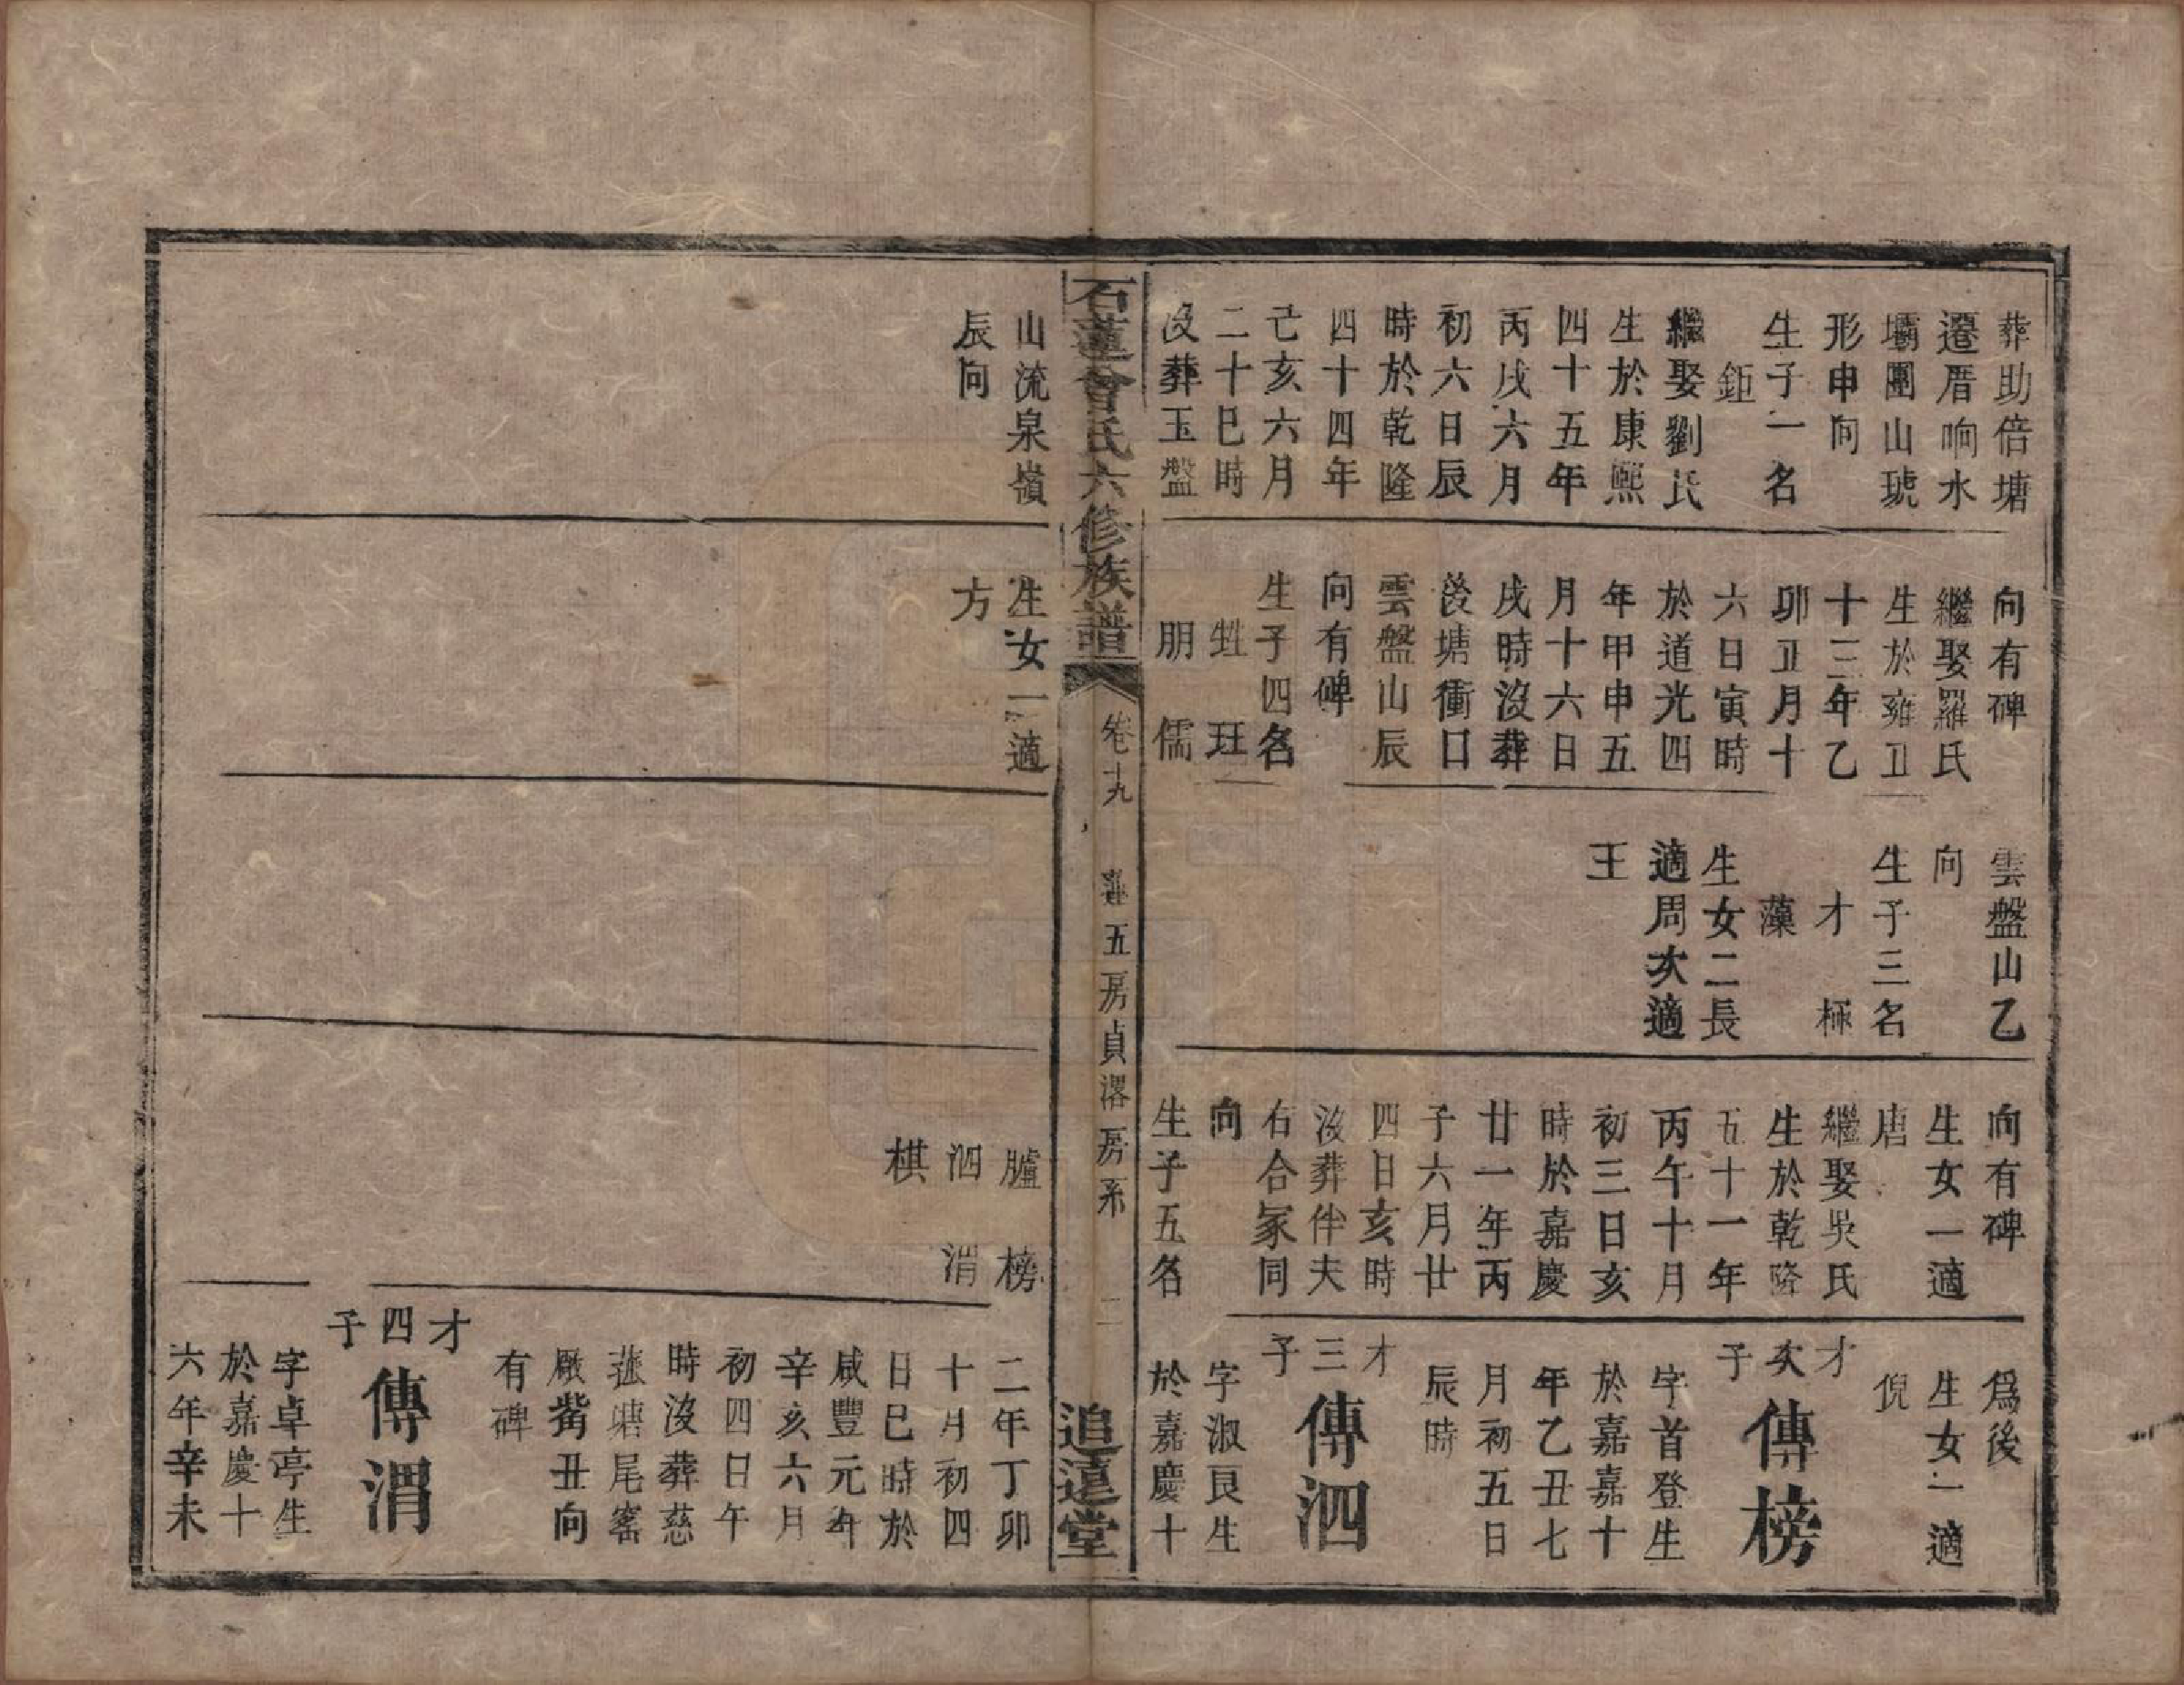 葬助倍塘
遷厝响水
壩團山琥
形申向
生子一名
鉅
繼娶劉氏
生於康熙
四十五年
丙戌六月
初六日辰
時於乾隆
四十四年
己亥六月
二十巳時
沒葬玉盤
向有碑
繼娶羅氏
生於雍正
十三年乙
卯正月十
六日寅時
於道光四
年甲申五
月十六日
戌時沒葬
後塘衝口
雲盤山辰
向有碑
生子四名
甡 玨
朋 儒
雲盤山乙
向
生子三名
才 極
藻
生女二長
適周次適
王
向有碑
生女一適
唐
繼娶吳氏
生於乾隆
五十一年
丙午十月
初三日亥
時於嘉慶
廿一年丙
子六月廿
四日亥時
沒葬伴夫
右合冢同
向
生子五名
為後
生女一適
倪
才次子
傳榜
字首登生
於嘉嘉十
年乙丑七
月初五日
辰時
才三子
傳泗
字淑艮生
於嘉慶十
石蓮曾氏六修族譜
卷十九
五房貞畧房系
二
追遠堂
山流泉嶺
辰向
生女一適
方
臚 榜
泗 渭
棋
二年丁卯
十月初四
日巳時於
咸豐元年
辛亥六月
初四日午
時沒葬慈
菰塘尾窰
廠觜丑向
有碑
才四子
傳渭
字卓亭生
於嘉慶十
六年辛未